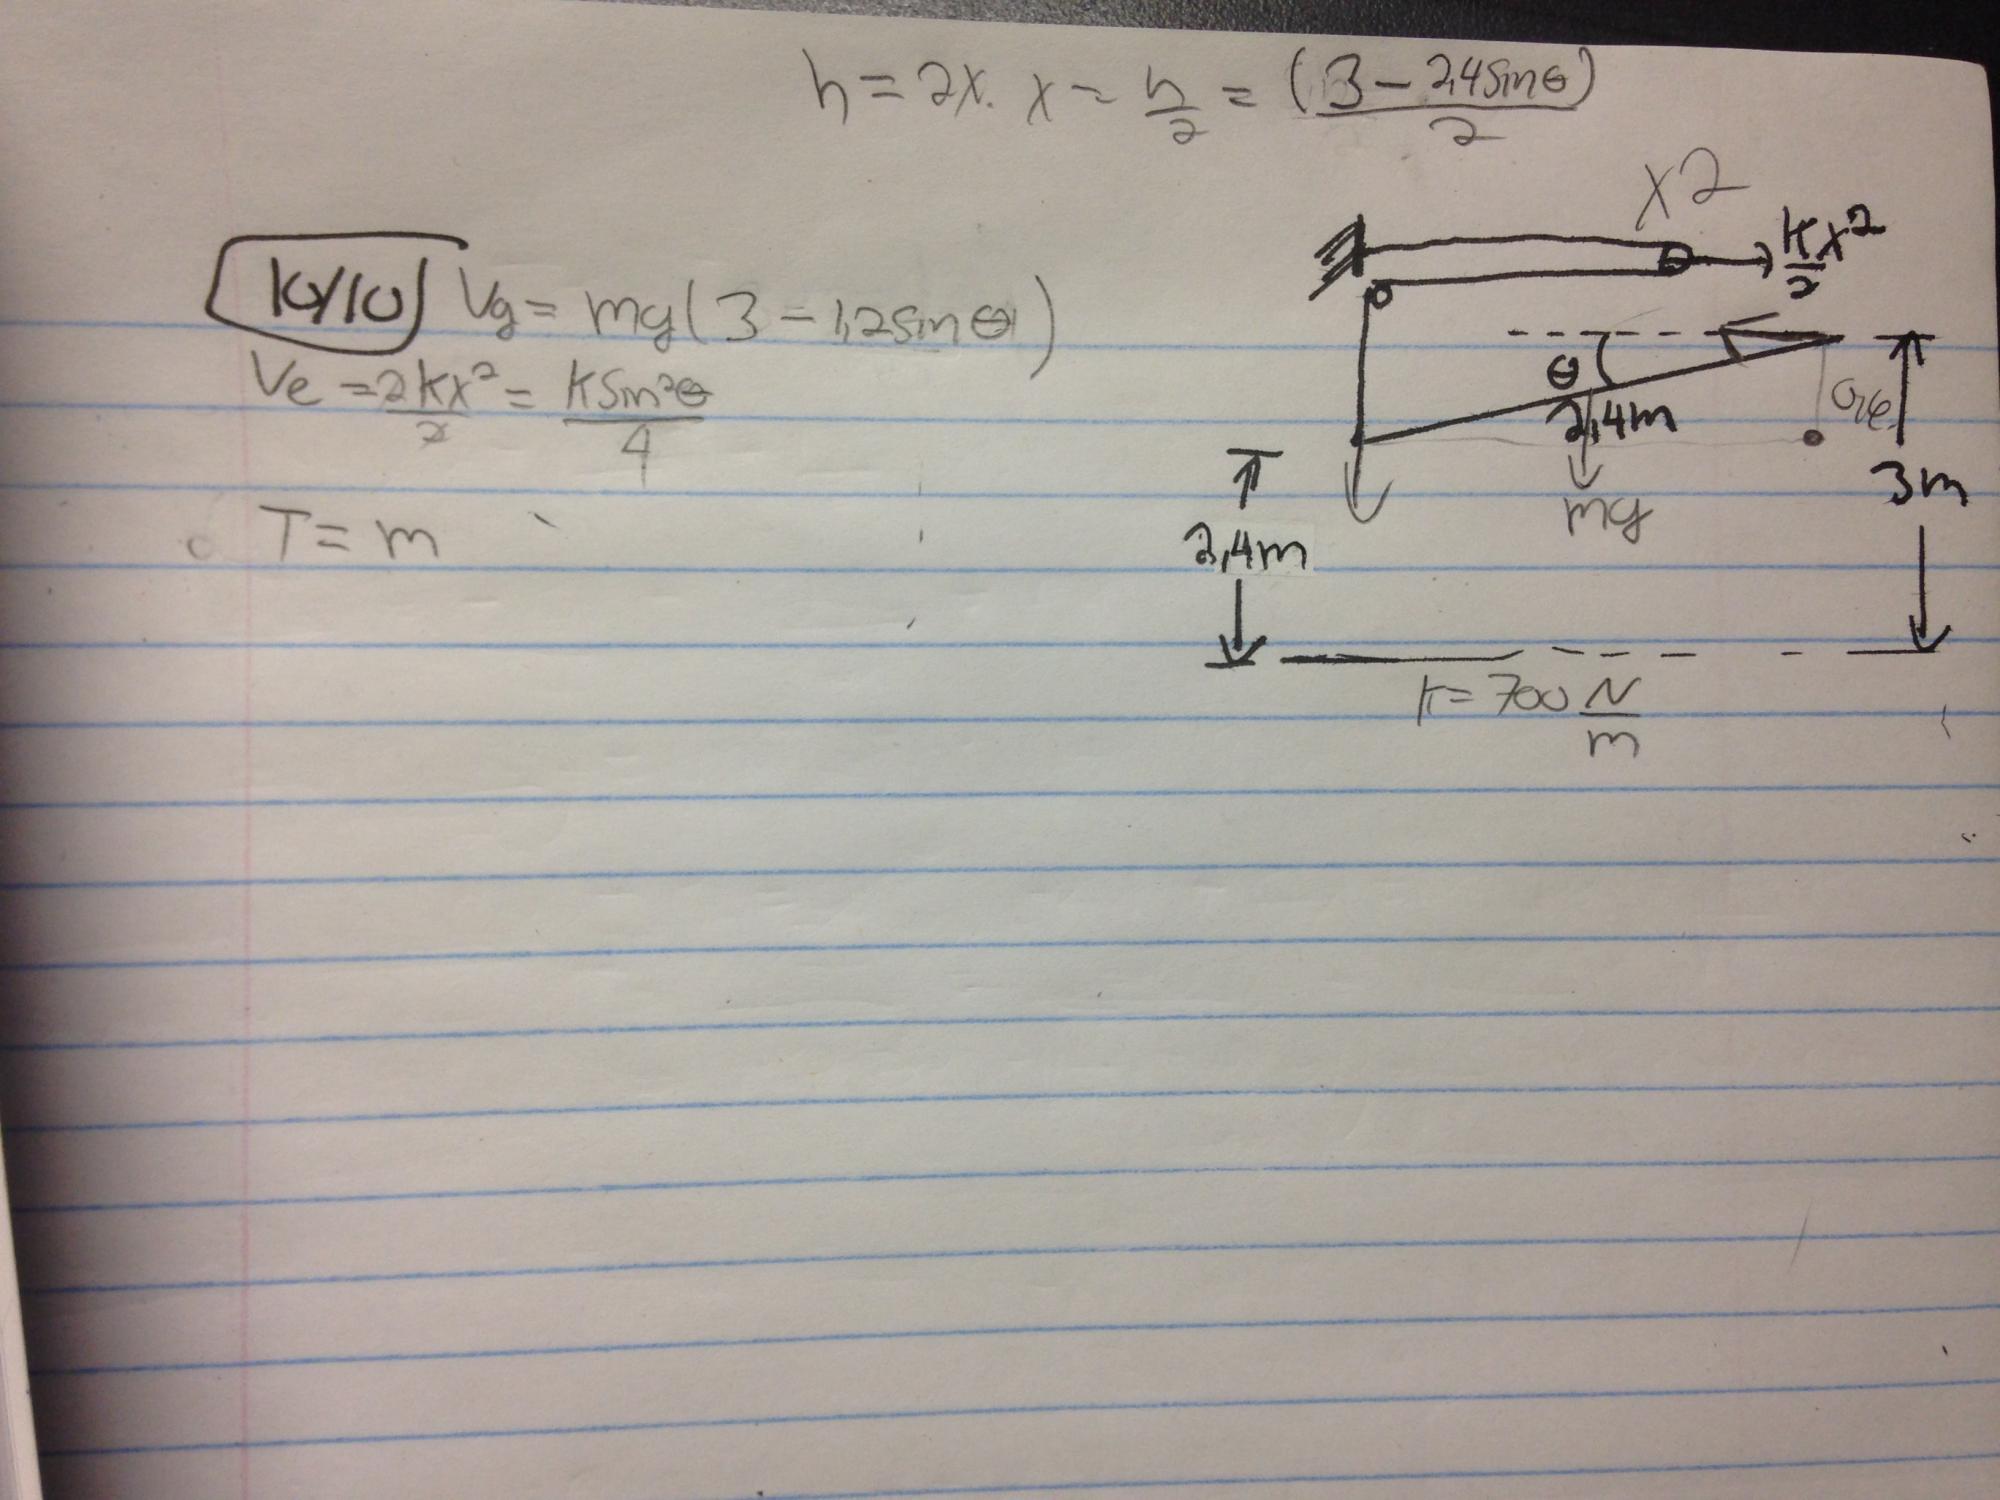 h = 2x. x = h/2 = (3 - 2,4sinθ)/2
Vg = mg(3 - 1,2sinθ)
Ve = 2kx²/2 = Ksin²θ/4
T = m
x2
K/2 x²
θ
2,4m
3m
mg
2,4m
K = 700 N/m